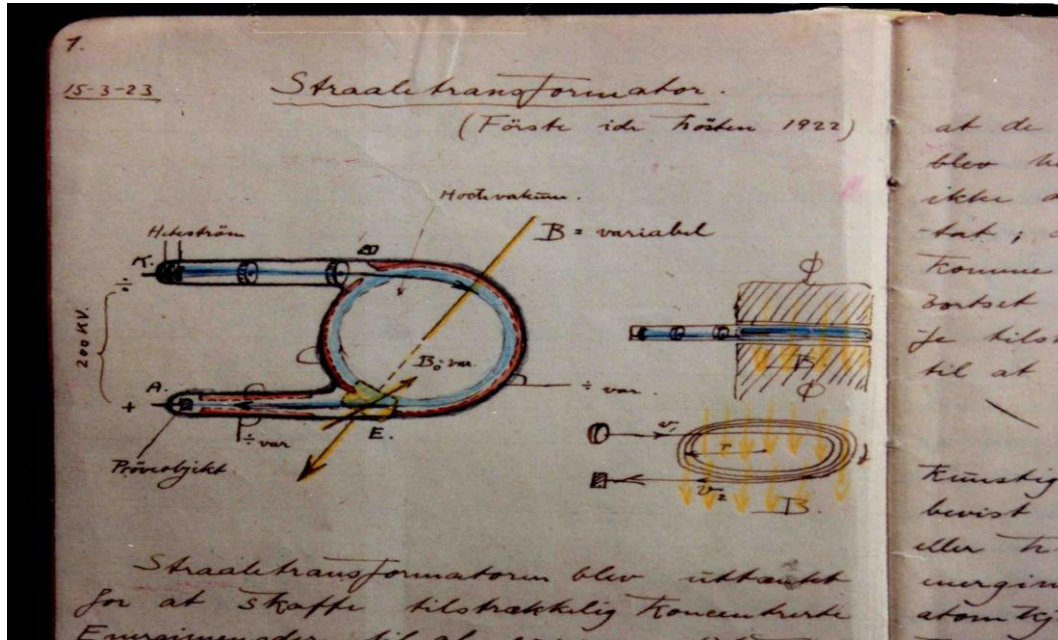 1.
15-3-23
Straaletransformator.
(Förste ide hösten 1922)
Hochvakuum.
B = variabel
Heteström
K.
÷
200 KV.
B₀ ÷ var.
÷ var.
A.
+
E.
÷ var
Pröveobjekt.
ϕ
B
ϕ
v₁
r
v₂
B.
Straaletransformatoren blev uttænkt
for at skaffe tilstrækkelig koncentrerte
Energimengder til at
at de
blev
ikke
-tat;
komme
bortset
til at
kunstig
bevist
eller